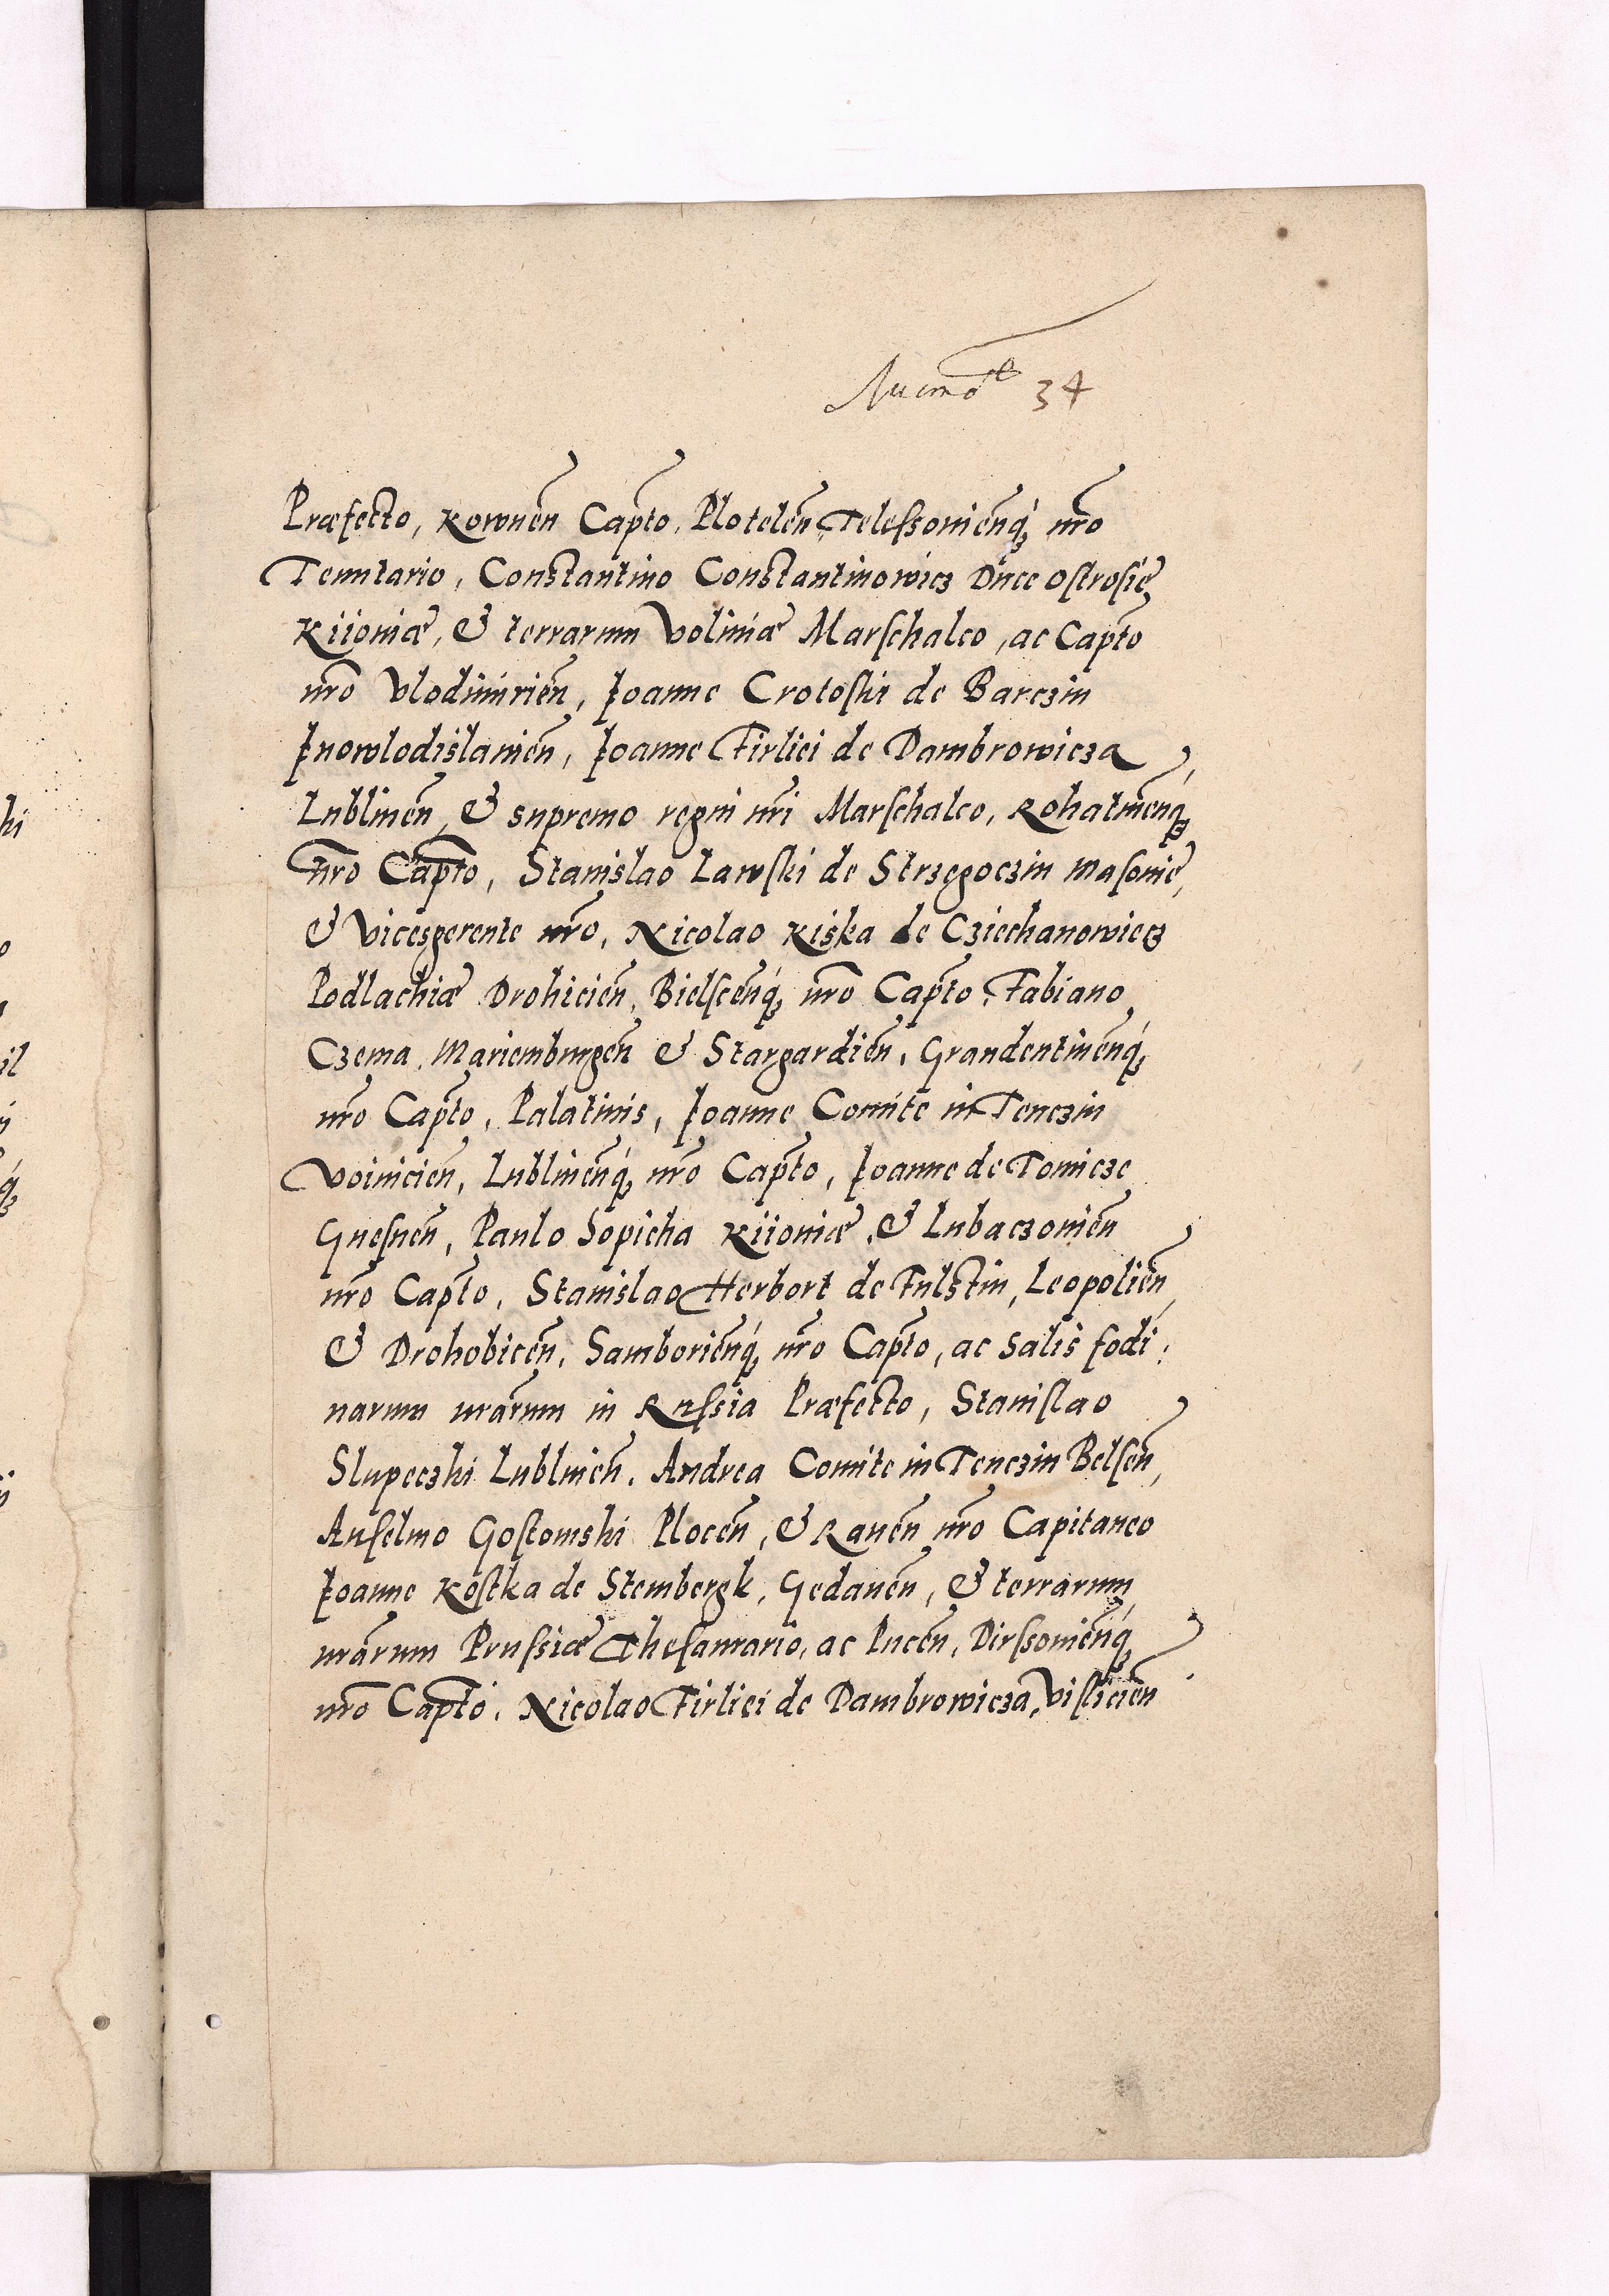 Numo 34
Præfecto, Kownen̄ Cap̄to, Plotelen̄ Telessouien̄q₃ nr̄o
Tenutario, Constantino Constantinowicz Duce Ostrosię
Kiiouiæ, & terrarum Voliniæ Marschalco, ac Cap̄to
nr̄o Vlodimirien̄, Joanne Crotoski de Barczin
Jnowlodislauien̄, Joanne Firliei de Dambrowicza
Lublinen̄, & supremo regni nr̄i Marschalco, Rohatinen̄q₃
nr̄o Cap̄to, Stanislao Lawski de Strzegoczin Masouię,
& Vicesgerente nr̄o, Nicolao Kiska de Cziechanowiecz
Podlachiæ Drohicien̄, Bielscen̄q₃ nr̄o Cap̄to, Fabiano
Czema, Mariemburgen̄ & Stargardien̄, Graudentinen̄q₃
nr̄o Cap̄to, Palatinis, Joanne Comite in Tenczin
Voinicien̄, Lublinen̄q₃ nr̄o Cap̄to, Joanne de Tomicze
Gnesnen̄, Paulo Sopieha Kiiouiæ, & Lubaczouien̄
nr̄o Cap̄to, Stanislao Herbort de Fulstin, Leopolien̄,
& Drohobicen̄, Samborien̄q₃ nr̄o Cap̄to, ac Salis fodi,
narum nr̄arum in Russia Præfecto, Stanislao
Slupeczki Lublinen̄, Andrea Comite in Tenczin Belsen̄,
Anselmo Gostomski Plocen̄, & Rauen̄ nr̄o Capitaneo
Joanne Kostka de Stembergk, Gedanen̄, & terrarum
nr̄arum Prussiæ Thesaurario, ac Pucen̄, Dirssouien̄q₃
nr̄o Cap̄to, Nicolao Firliei de Dambrowicza, Vislicien̄